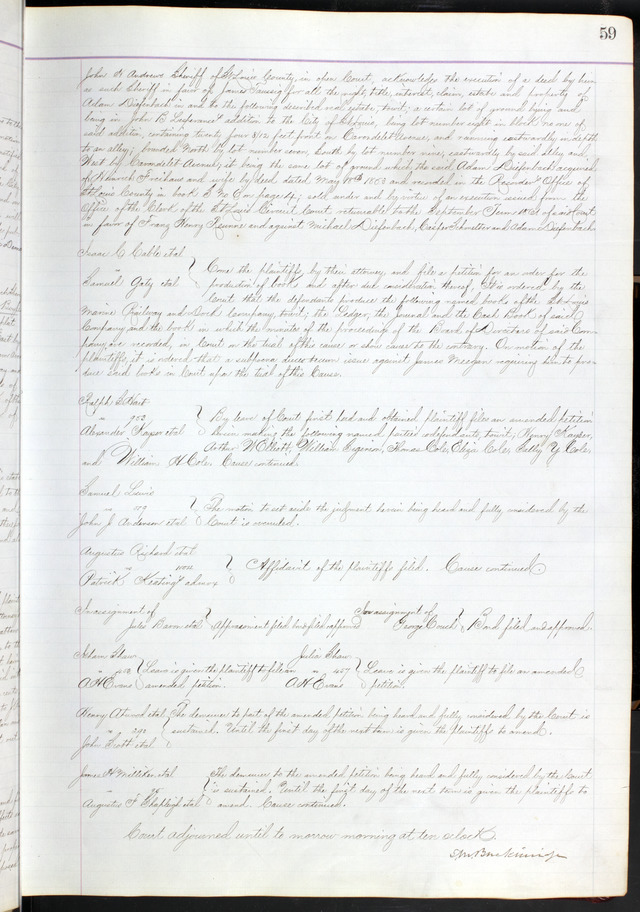 59
John H Andrews Sheriff of St Louis County, in open Court, acknowledges the execution of a deed by him
as such Sheriff in favor of James Taussig for all the right, title, interest, claim, estate and property of
Adam Diefenbach in and to the following described real estate, towit; a certain lot of ground lying and
being in John B Lesperance's addition to the City of St Louis, being lot number eight in block no one of
said addition, containing twenty four feet front on Carondelet Avenue, and running eastwardly in depth
to an alley; bounded North by lot number seven, South by lot number nine, eastwardly by said alley and
West by Carondelet Avenue, it being the same lot of ground which the said Adam Diefenbach acquired
of Heinrich and wife by deed dated May 1853 and recorded in the Recorder's Office of
St Louis County in book No 6 on page; sold under and by virtue of an execution issued from the
Office of the Clerk of the St Louis Circuit Court returnable to the September Term of said Court
in favor of Franz Henry and against Michael Diefenbach, Casper Schnetter and Adam Diefenbach
Isaac C Cable etal
Samuel Gaty etal
Come the plaintiffs, by their attorney, and file a petition for an order for the
production of books and after due consideration thereof, It is ordered by the
Court that the defendants produce the following named books of the St Louis
Marine Railway and Dock Company, towit; the Ledger, the Journal and the Cash Book of said
Company and the book in which the minutes of the proceedings of the Board of Directors of said Com-
pany are recorded, in Court on the trial of this cause or show cause to the contrary. On motion of the
plaintiffs, it is ordered that a subpoena duces tecum issue against James Meegan requiring him to pro-
duce said books in Court upon the trial of this Cause.
Ralph S Hart
" 953
Alexander Kayser etal
By leave of Court first had and obtained, plaintiff files an amended petition
herein making the following named parties defendants, towit, Henry Kayser,
Arthur W Elliott, William, Thomas Cole, Eliza Cole, Sally Y Cole,
and William H Cole. Cause continued.
Samuel Lewis
" 119
John J Anderson etal
The motion to set aside the judgment herein being heard and fully considered by the
Court is overruled.
Augustus Richard etal
Patrick Keating's admx
Affidavit of the plaintiffs filed. Cause continued.
In assignment of
Jules Baron etal
Appraisement filed bond filed approved
In assignment of
George Couch
Bond filed and approved.
Adam Shaw
A H Evans
Leave is given the plaintiff to file an
amended petition.
Julia Shaw
" 457
A H Evans
Leave is given the plaintiff to file an amended
petition.
Henry Atwood etal
John Scott etal
The demurrer to part of the amended petition being heard and fully considered by the Court is
sustained. Until the first day of the next term is given the plaintiffs to amend.
James H Milliken etal
Augustus F Shapleigh etal
The demurrer to the amended petition being heard and fully considered by the Court
is sustained. Until the first day of the next term is given the plaintiffs to
amend. Cause continued.
Court adjourned until to morrow morning at ten o clock